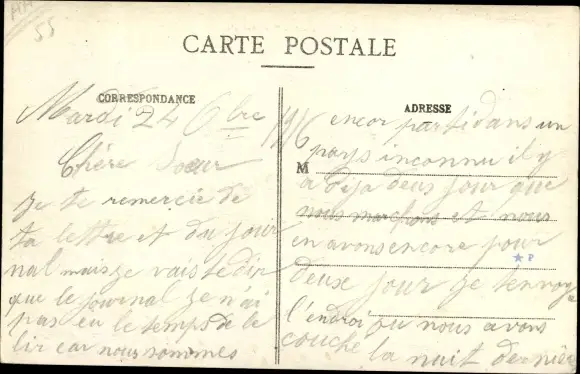 55
CARTE POSTALE
CORRESPONDANCE
Mardi 24 Obre 1916
Chère Soeur
je te remercie de
ta lettre et du jour
nal mais je vais te dir
que le journal je n'ai
pas eu le temps de le
lir car nous sommes
ADRESSE
M
encor parti dans un
pays inconnu il y
a deja deus jour que
nous marchons et nous
en avons encore pour
deuse jour je t'envoy
l'endroi ou nous avons
couche la nuit derniere